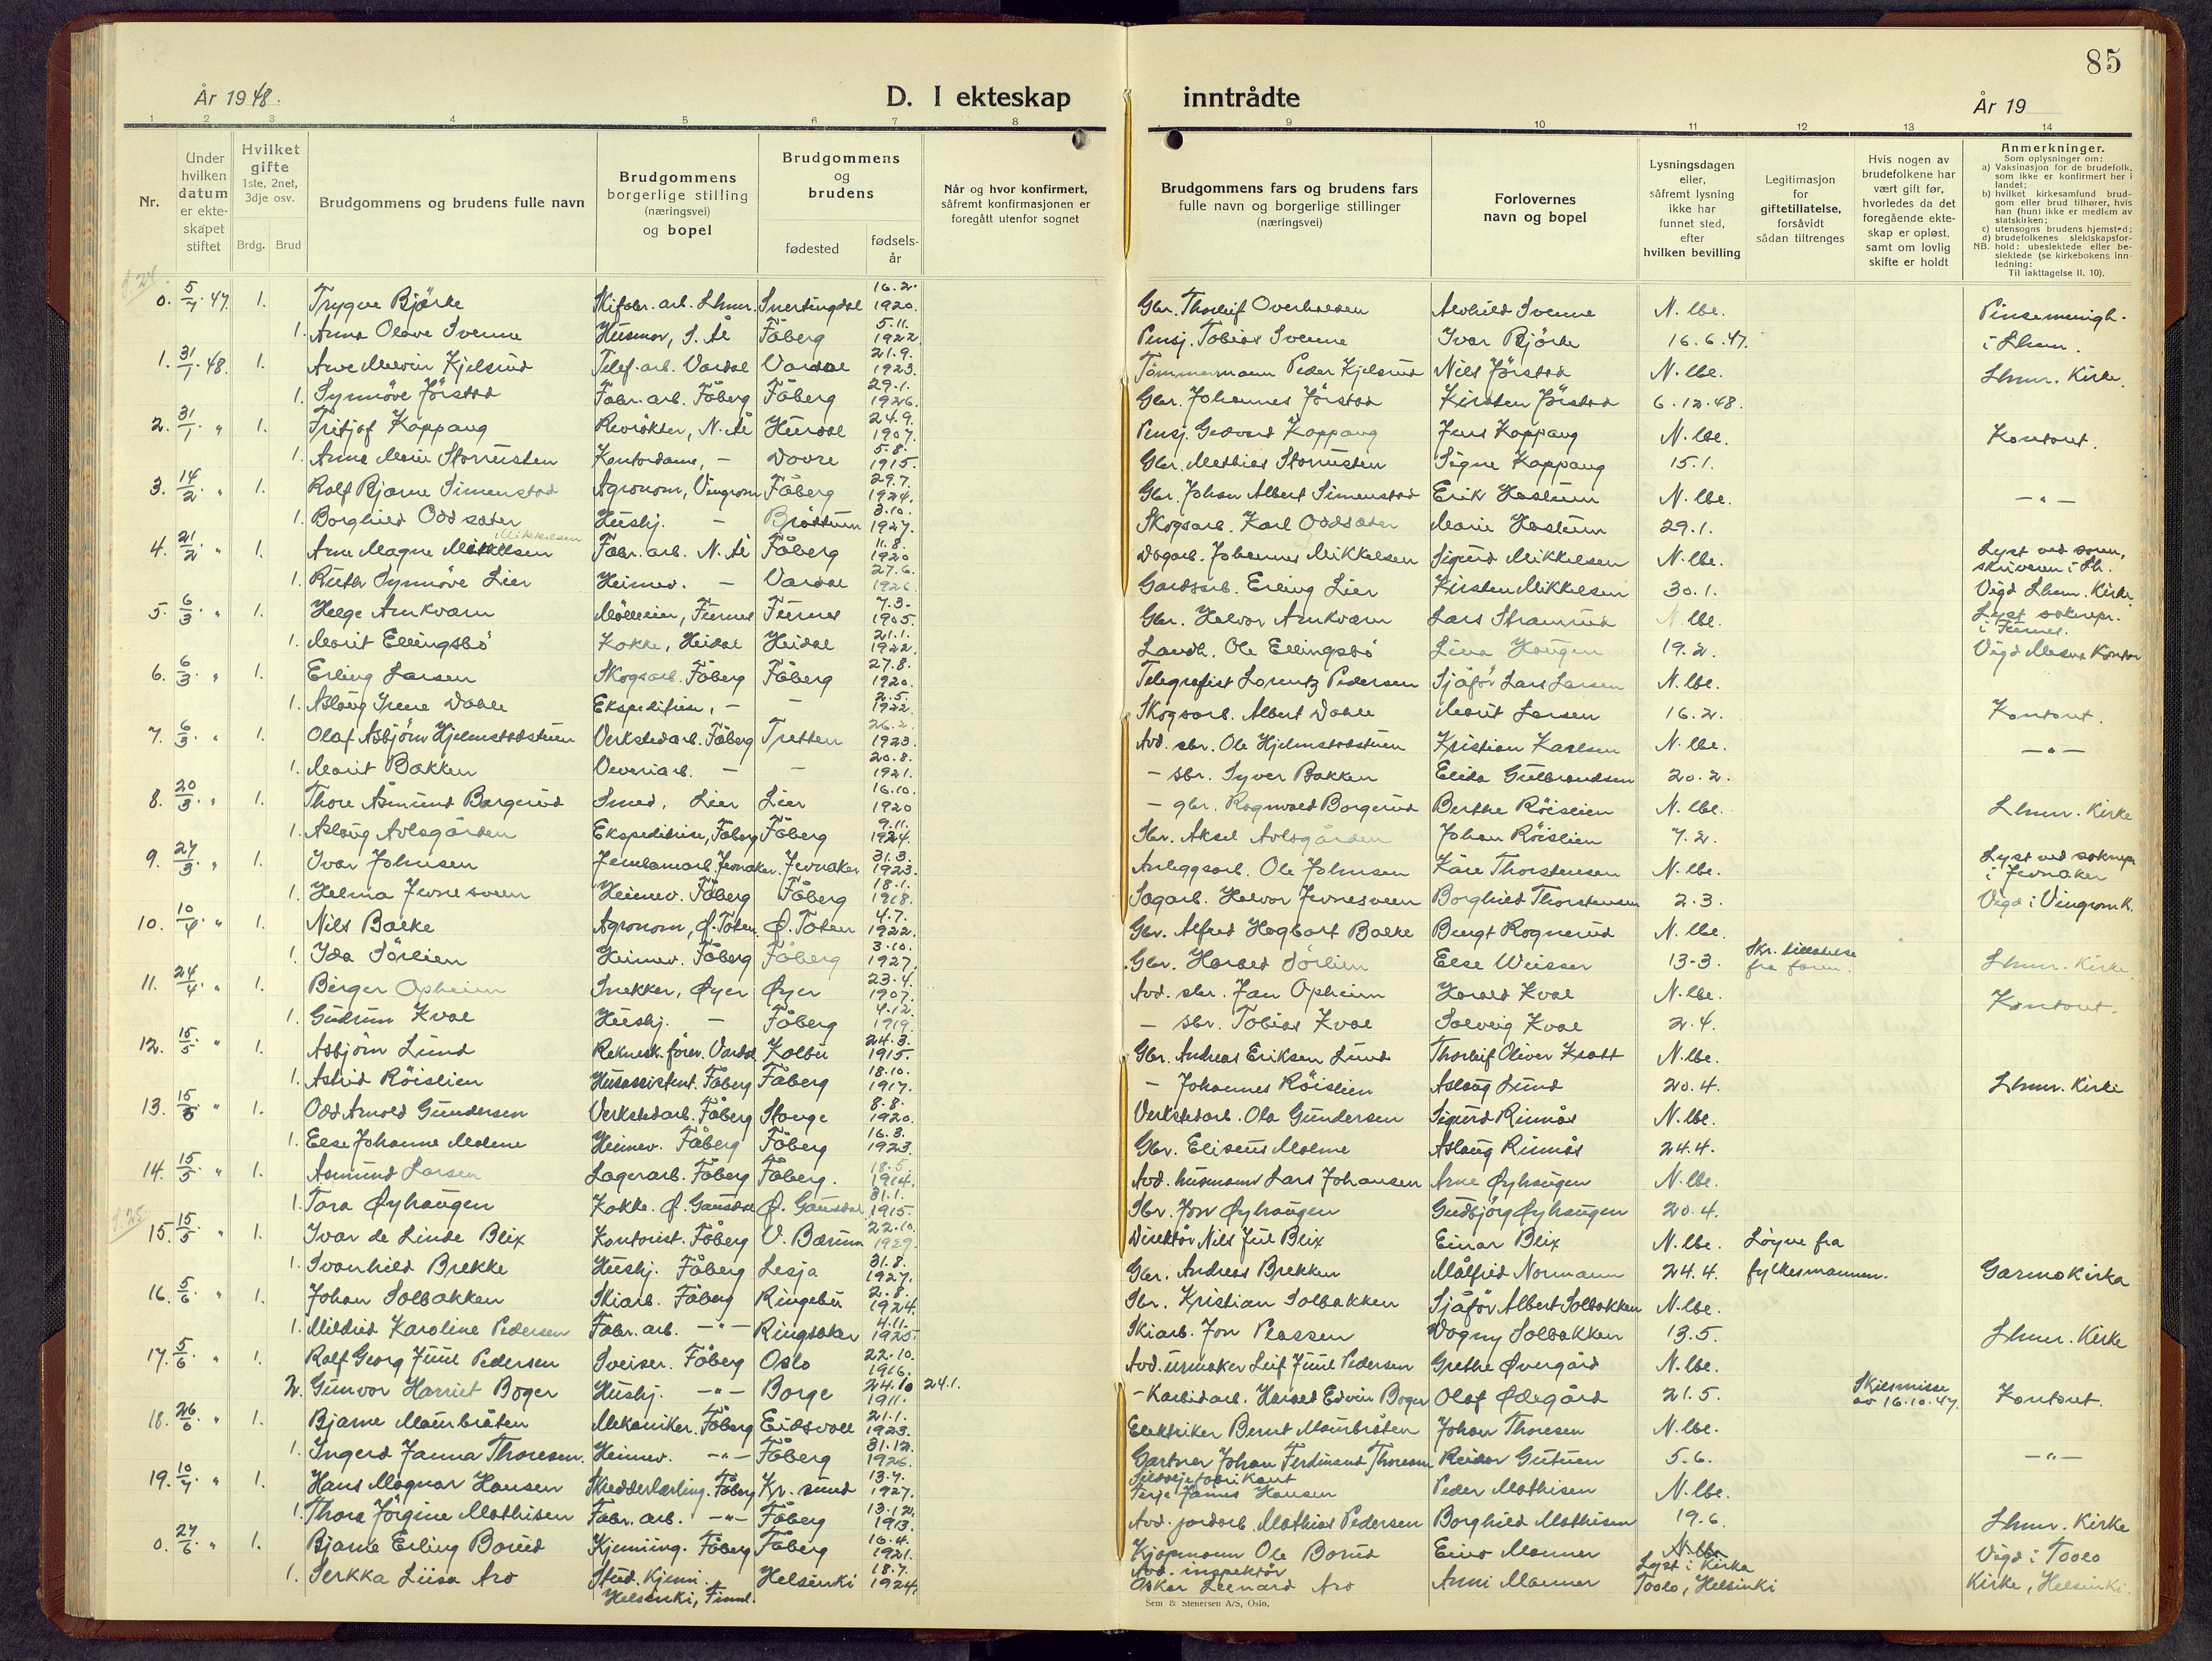 85
År 1948. D. I ekteskap inntrådte År 19
1 2 3 4 5 6 7 8 9 10 11 12 13 14
Nr.
Under hvilken datum er ekte-skapet stiftet
Hvilket gifte 1ste, 2net, 3dje osv.
Brdg. Brud
Brudgommens og brudens fulle navn
Brudgommens borgerlige stilling (næringsvei) og bopel
Brudgommens og brudens
fødested fødsels-år
Når og hvor konfirmert, såfremt konfirmasjonen er foregått utenfor sognet
Brudgommens fars og brudens fars fulle navn og borgerlige stillinger (næringsvei)
Forlovernes navn og bopel
Lysningsdagen eller, såfremt lysning ikke har funnet sted, efter hvilken bevilling
Legitimasjon for giftetillatelse, forsåvidt sådan tiltrenges
Hvis nogen av brudefolkene har vært gift før, hvorledes da det foregående ekte-skap er opløst, samt om lovlig skifte er holdt
Anmerkninger.
Som oplysninger om:
a) Vaksinasjon for de brudefolk, som ikke er konfirmert her i landet;
b) hvilket kirkesamfund brud-gom eller brud tilhører, hvis han (hun) ikke er medlem av statskirken;
c) utensogns brudens hjemsted;
d) brudefolkenes slektskapsfor-hold: ubeslektede eller be-slektede (se kirkebokens inn-ledning:
NB. Til iakttagelse II. 10).
0. 5/7. 47. 1. Trygve Bjørke Skifabr. arb. Lhmr. Snertingdal 16.2. 1920. Gbr. Thorleif Overhalsen Alvhild Svenne N. lbe. Pinsemenigh.
1. Anna Olave Svenne Husmor, S. Ål Fåberg 5.11. 1922 Pensj. Tobias Svenne Ivar Bjørke 16.6.47. i Lhmr.
1. 31/1. 48. 1. Arne Melvin Kjelsrud Telef. arb. Vardal Vardal 21.9. 1923. Tømmermann Peder Kjelsrud Nils Jørstad N. lbe. Lhmr. Kirke.
1. Synnøve Jørstad Fabr. arb. Fåberg Fåberg 29.1. 1926. Gbr. Johannes Jørstad Kirsten Jørstad 6.12.48.
2. 31/1. " 1. Fritjof Koppang Røvrøkter, N. Ål Hurdal 24.9. 1907. Pensj. Gedvard Koppang Jens Koppang N. lbe. Kontoret.
1. Anna Marie Storrusten Kontordame, - Dovre 5.8. 1915. Gbr. Mathias Storrusten Signe Koppang 15.1.
3. 14/2. " 1. Rolf Bjarne Simenstad Agronom, Vingrom Fåberg 29.7. 1924. Gbr. Johan Albert Simenstad Erik Haslum N. lbe. - " -
1. Borghild Oddsæter Hushj. - Brøttum 3.10. 1927. Skogsarb. Karl Oddsæter Marie Haslum 29.1.
4. 21/2. " 1. Arne Magne Mikkelsen Mikkelsen Fabr. arb. N. Ål Fåberg 11.8. 1920 Dagarb. Johannes Mikkelsen Sigurd Mikkelsen N. lbe. Lyst ved soren,
skriveren i Lh.
1. Ruth Synnøve Lier Heimev. - Vardal 27.6. 1926 Gardsarb. Erling Lier Kirsten Mikkelsen 30.1. Vigd Lhmr. Kirke
5. 6/3. " 1. Helge Amkvam Mølleeier, Furnes Furnes 7.3. 1905. Gbr. Halvor Amkvam Lars Stramrud N. lbe. Lyst soknepr.
i Furnes.
1. Marit Ellingsbø Kokke, Heidal Heidal 21.1. 1922. Landh. Ole Ellingsbø Lina Haugen 19.2. Vigd Mesna Kontor
6. 6/3. " 1. Erling Larsen Skogsarb. Fåberg Fåberg 27.8. 1920. Telegrafist Lorentz Pedersen Sjåfør Lars Larsen N. lbe.
1. Aslaug Irene Dahle Ekspeditrise, - - 2.5. 1922. Skogsarb. Albert Dahle Marit Larsen 16.2. Kontoret.
7. 6/3. " 1. Olaf Asbjørn Hjelmstadstuen Verkstedarb. Fåberg Tretten 26.2. 1923. Avd. sbr. Ole Hjelmstadstuen Kristian Karlsen N. lbe. - " -
1. Marit Bakken Veveriarb. - - 20.8. 1921. - sbr. Syver Bakken Elida Gulbrandsen 20.2.
8. 20/3. " 1. Thore Åsmund Borgerud Smed, Lier Lier 16.10. 1920 - gbr. Ragnvald Borgerud Berthe Røislien N. lbe. Lhmr. Kirke
1. Aslaug Avlsgården Ekspeditrise, Fåberg Fåberg 9.11. 1924. Sbr. Aksel Avlsgården Johan Røislien 7.2.
9. 27/3. " 1. Ivar Johnsen Jernbanearb. Jevnaker. Jevnaker 31.3. 1923. Anleggsarb. Ole Johnsen Kåre Thorstensen N. lbe. Lyst ved soknepr
i Jevnaker
1. Helma Jevnesveen Heimev. Fåberg Fåberg 18.1. 1918. Sagarb. Halvor Jevnesveen Borghild Thorstensen 2.3. Vigd i Vingrom K.
10. 10/4. " 1. Nils Balke Agronom, Ø. Toten. Ø. Toten 4.7. 1922. Gbr. Alfred Hagbart Balke Bengt Rognerud N. lbe.
1. Ida Sørlien Heimev. Fåberg Fåberg 3.10. 1927. Gbr. Harald Sørlien Else Weisser 13-3. Skr. tillatelse
fra foren. Lhmr. Kirke.
11. 24/4. " 1. Birger Opheim Snekker, Øyer Øyer 23.4. 1907. Avd. sbr. Jan Opheim Harald Kval N. lbe. Kontoret.
1. Gudrun Kval Hushj. - Fåberg 4.12. 1919. - sbr. Tobias Kval Solveig Kval 2.4.
12. 15/5. " 1. Asbjørn Lund Reknesk. fører. Vardal Kolbu 24.3. 1915. Gbr. Andreas Eriksen Lund Thorleif Oliver Kratt N. lbe.
1. Astrid Røislien Husassistent. Fåberg Fåberg 18.10. 1917. - Johannes Røislien Aslaug Lund 20.4. Lhmr. Kirke
13. 15/5 " 1. Odd Arnold Gundersen Verkstedarb. Fåberg Stange 8.8. 1920. Verkstedarb. Ola Gundersen Sigurd Rinnås N. lbe.
1. Else Johanne Malme Heimev. Fåberg Fåberg 16.3. 1923. Gbr. Eliseus Malme Aslaug Rinnås 24.4.
14. 15/5. " 1. Asmund Larsen Lagerarb. Fåberg Fåberg. 18.5. 1914. Avd. husmann Lars Johansen Arne Øyhaugen N. lbe.
1. Tora Øyhaugen Kokke. Ø. Gausdal Ø. Gausdal 31.1. 1915. Sbr. Jon Øyhaugen Gudbjørg Øyhaugen 20.4.
15. 15/5 " 1. Ivar de Linde Blix Kontorist. Fåberg V. Bærum 22.10. 1929. Direktør Nils Juul Blix Einar Blix N. lbe. Løyve fra
1. Svanhild Brekke Hushj. Fåberg Lesja 31.8. 1927. Gbr. Andreas Brekken Målfrid Normann 24.4. fylkesmannen. Garmokirka
16. 5/6. " 1. Johan Solbakken Skiarb. Fåberg Ringebu 2.8. 1924. Sbr. Kristian Solbakken Sjåfør Albert Solbakken N. lbe.
1. Mildrid Karoline Pedersen Fabr. arb. - " - Ringsaker 4.11. 1925. Skiarb. Jon Plassen Dagny Solbakken 13.5. Lhmr. Kirke
17. 5/6 " 1. Rolf Georg Juul Pedersen Sveiser. Fåberg Oslo 22.10. 1916. Avd. urmaker Leif Juul Pedersen Grethe Øvergård N. lbe.
2. Gunvor Harriet Boger Hushj. - " - Borge 24.10 1911. 24.1. - Karbidarb. Harald Edvin Boger Olaf Ødegård 21.5. Skilsmisse
av 16.10.47. Kontoret.
18. 26/6 " 1. Bjarne Maurbråten Mekaniker. Fåberg Eidsvoll 21.1. 1923. Elektriker Bernt Maurbråten Johan Thoresen N. lbe.
1. Ingerd Janna Thoresen. Heimev. - " - Fåberg 31.12. 1926. Gartner Johan Ferdinand Thoresen Reidar Gutuen 5.6. - " -
19. 10/7 " 1. Hans Magnar Hansen Skredderlærling. Fåberg Kr. sund 13.7. 1927. Sildoljefabrikant
Terje Jamis Hansen Peder Mathisen N. lbe.
1. Thora Jørgine Mathisen Fabr. arb. - " - Fåberg 13.12. 1913. Avd. jordarb. Mathias Pedersen Borghild Mathisen 19.6. Lhmr. Kirke
0. 27/6. " 1. Bjarne Erling Borud Kjemiing. Fåberg Fåberg 16.4. 1921. Kjøpmann Ole Borud Eino Manner N. lbe. Vigd i Toolo
1. Serkka Liisa Aro Stud. Kjemi
Helsinki, Finnl. Helsinki 18.7. 1924. Avd. inspektør
Oskar Leenard Aro Anni Manner Lyst i Kirka
Toolo, Helsinki Kirke, Helsinki.
Sem & Stenersen A/S, Oslo.